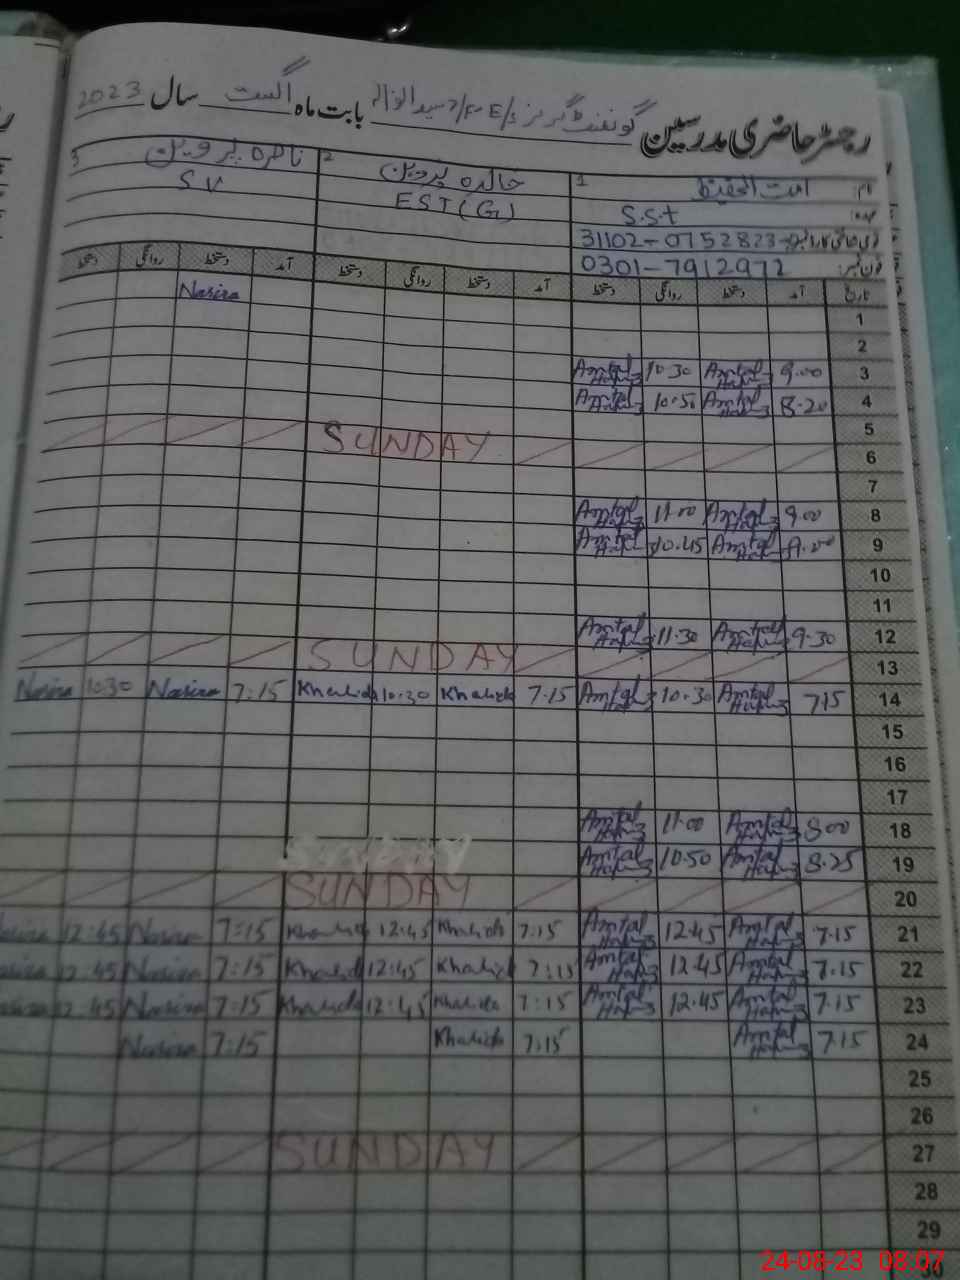 رجسٹر حاضری مدرسین گورنمنٹ گرلز بابت ماہ اگست سال 2023
نام: 1 امت الحفیظ 2 خالدہ پروین 3 ناصرہ پروین
عہدہ: S.St EST(G) SV
31102-0752823-
فون نمبر: 0301-7912972
تاریخ آمد دستخط روانگی دستخط آمد دستخط روانگی دستخط آمد دستخط روانگی دستخط
1 Nasira
2
3 9.00 Amtal 10.30 Amtal
4 8.20 Amtal 10.50 Amtal
5
6 SUNDAY
7
8 9.00 Amtal 11.00 Amtal
9 9.00 Amtal 10.45 Amtal
10
11
12 9.30 Amtal 11.30 Amtal
13 SUNDAY
14 7.15 Amtal 10.30 Amtal 7.15 Khalida 10.30 Khalida 7:15 Nasira 10:30 Nasira
15
16
17
18 8.00 Amtal 11.00 Amtal
19 8.25 Amtal 10.50 Amtal
20 SUNDAY
21 7.15 Amtal 12.45 Amtal 7:15 Khalida 12.45 Khalida 7:15 Nasira 12:45 Nasira
22 7.15 Amtal 12.45 Amtal 7:15 Khalida 12:45 Khalida 7:15 Nasira 12:45 Nasira
23 7.15 Amtal 12.45 Amtal 7:15 Khalida 12:45 Khalida 7:15 Nasira 12:45 Nasira
24 7.15 Amtal 7:15 Khalida 7:15 Nasira
25
26
27 SUNDAY
28
29
30
24-08-23 08:07